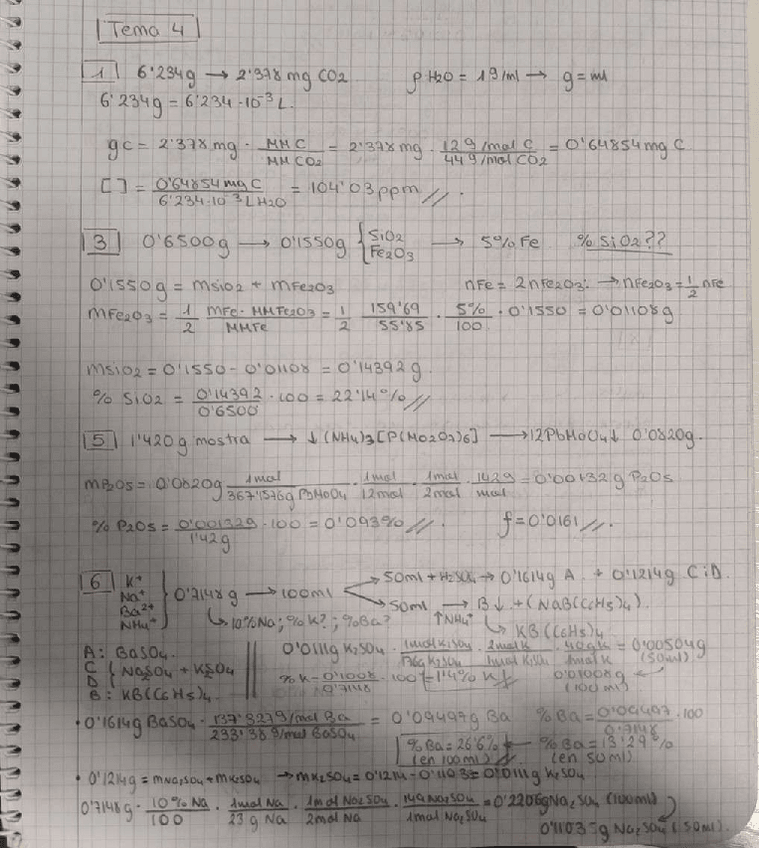 Tema 4
1 6'234g → 2'378 mg CO2 ρ H2O = 1g/ml → g = ml
6'234g = 6'234·10⁻³ L.
gC = 2'378 mg · MM C / MM CO2 = 2'378 mg · 12 g/mol C / 44 g/mol CO2 = 0'64854 mg C
[ ] = 0'64854 mg C / 6'234·10⁻³ L H2O = 104'03 ppm //.
3 0'6500g → 0'1550g { SiO2 Fe2O3 → 5% Fe % SiO2??
0'1550g = mSiO2 + mFe2O3 nFe = 2nFe2O3: → nFe2O3 = 1/2 nFe
mFe2O3 = 1/2 mFe · MMFe2O3 / MMFe = 1/2 · 159'69 / 55'85 · 5% / 100 · 0'1550 = 0'01108g
mSiO2 = 0'1550 - 0'01108 = 0'14392 g.
% SiO2 = 0'14392 / 0'6500 · 100 = 22'14% //
5 1'420g mostra → ↓ (NH4)3[P(Mo2O7)6] → 12PbMoO4↓ 0'0820g.
mP2O5 = 0'0820g 1mol / 367'1576g PbMoO4 · 1mol / 12mol · 1mol / 2mol · 142g / mol = 0'00132 g P2O5
% P2O5 = 0'00132g / 1'42g · 100 = 0'093% //. f = 0'0161 //.
6 K⁺ Na⁺ Ba²⁺ NH4⁺ } 0'7148 g → 100ml
→ 50ml + H2SO4 → 0'1614g A. + 0'1214g C i D.
→ 50ml → B↓ + (NaB(C6H5)4).
↳ 10% Na; % K?; % Ba? ↑NH4⁺ ↳ KB(C6H5)4
A: BaSO4
C D { Na2SO4 + K2SO4
B: KB(C6H5)4.
0'0111g K2SO4 · 1mol K2SO4 / K2SO4 · 2mol K / 1mol K2SO4 · 40g K / 1mol K = 0'00504g (50ml)
% K = 0'1008 / 0'7148 · 100 = 1'4% K 0'01008g (100 ml)
· 0'1614g BaSO4 · 137'327g/mol Ba / 233'38 g/mol BaSO4 = 0'09497g Ba % Ba = 0'09497 / 0'7148 · 100
% Ba = 26'6% (en 100ml) ← % Ba = 13'29% (en 50ml)
· 0'1214g = mNa2SO4 + mK2SO4 → mK2SO4 = 0'1214 - 0'1103 = 0'0111g K2SO4
0'7148g · 10% Na / 100 · 1mol Na / 23 g Na · 1mol Na2SO4 / 2mol Na · 142 Na2SO4 / 1mol Na2SO4 = 0'2206g Na2SO4 (100ml)
0'1103g Na2SO4 (50ml).